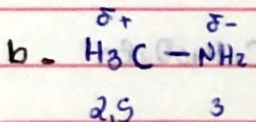 δ+ δ-
b. H3C - NH2
2,5 3